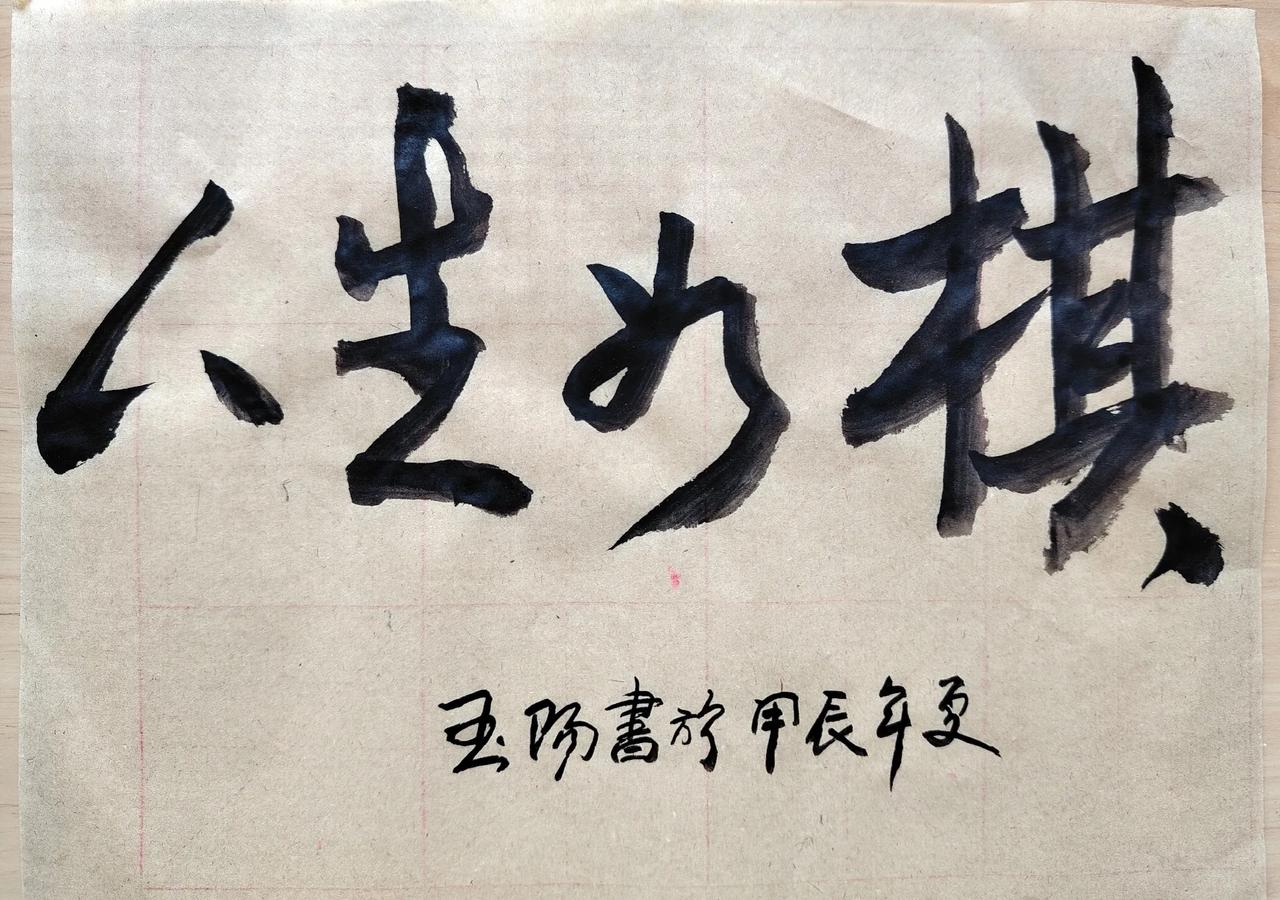 人生如棋
玉陽書於甲辰年夏